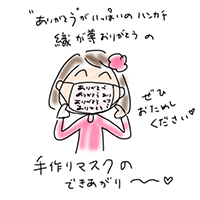 "ありがとう"がいっぱいのハンカチ
織が夢ありがとうの
ありがとう
ありがとう
ありがとう
ありがとう
ぜひ
おためし
ください♡
手作りマスクの
できあがり〜♡